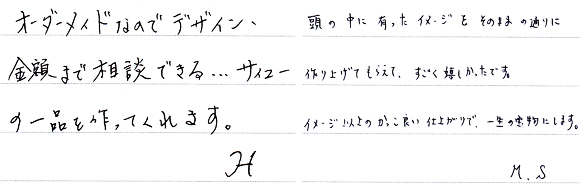 オーダーメイドなのでデザイン、
金額まで相談できる...サイコー
の一品を作ってくれます。
H
頭の中に有ったイメージをそのままの通りに
作り上げてもらえて、すごく嬉しかったです。
イメージ以上のかっこ良い仕上がりで、一生の宝物にします。
M.S